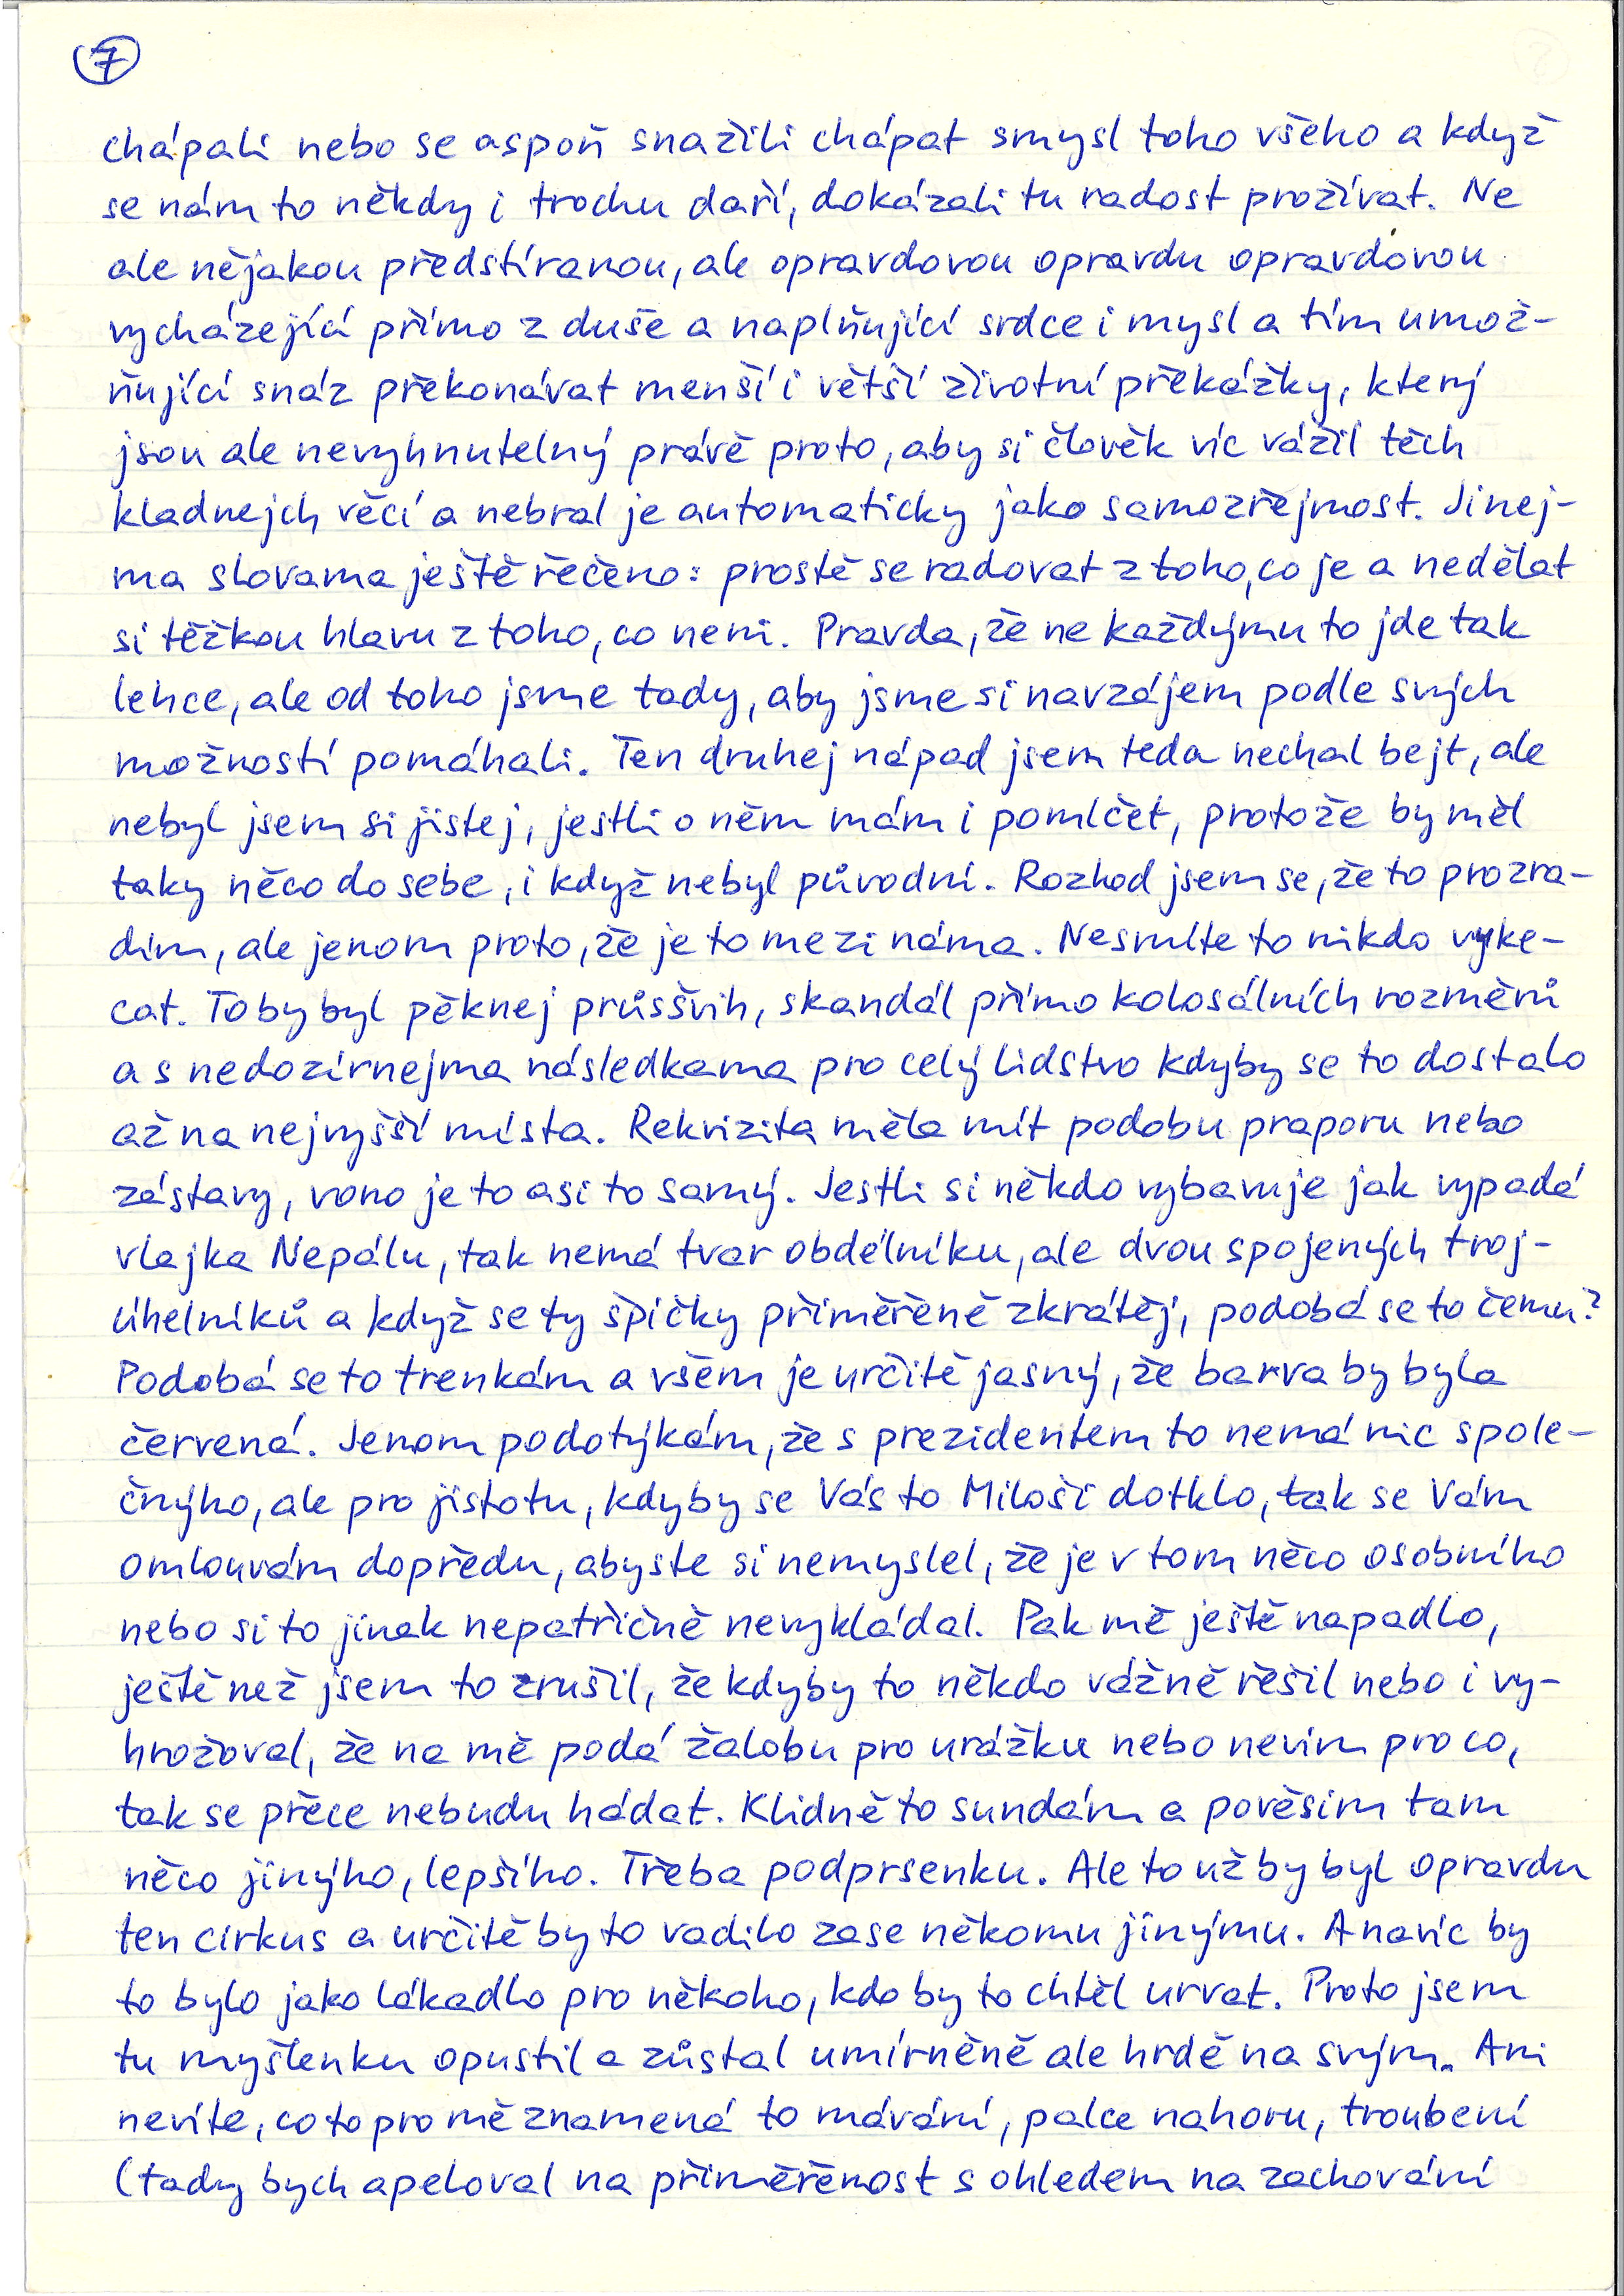 7
chápali nebo se aspoň snažili chápat smysl toho všeho a když
se nám to někdy i trochu daří, dokázali tu radost prožívat. Ne
ale nějakou předstíranou, ale opravdovou opravdu opravdovou
vycházející přímo z duše a naplňující srdce i mysl a tím umož-
ňující snáz překonávat menší i větší životní překážky, který
jsou ale nevyhnutelný právě proto, aby si člověk víc vážil těch
kladnejch věcí a nebral je automaticky jako samozřejmost. Jinej-
ma slovama ještě řečeno: prostě se radovat z toho, co je a nedělat
si těžkou hlavu z toho, co neni. Pravda, že ne každýmu to jde tak
lehce, ale od toho jsme tady, aby jsme si navzájem podle svých
možností pomáhali. Ten druhej nápad jsem teda nechal bejt, ale
nebyl jsem si jistej, jestli o něm mám i pomlčet, protože by měl
taky něco do sebe, i když nebyl původní. Rozhod jsem se, že to prozra-
dim, ale jenom proto, že je to mezi náma. Nesmíte to nikdo vyke-
cat. To by byl pěknej průsšvih, skandál přímo kolosálních rozměrů
a s nedozírnejma následkama pro celý lidstvo kdyby se to dostalo
až na nejvyšší místa. Rekvizita měla mít podobu praporu nebo
zástavy, vono je to asi to samý. Jestli si někdo vybavuje jak vypadá
vlajka Nepálu, tak nemá tvar obdélníku, ale dvou spojených troj-
úhelníků a když se ty špičky přiměřeně zkrátěj, podobá se to čemu?
Podobá se to trenkám a všem je určitě jasný, že barva by byla
červená. Jenom podotýkám, že s prezidentem to nemá nic spole-
čnýho, ale pro jistotu, kdyby se Vás to Miloši dotklo, tak se Vám
omlouvám dopředu, abyste si nemyslel, že je v tom něco osobního
nebo si to jinak nepatřičně nevykládal. Pak mě ještě napadlo,
ještě než jsem to zrušil, že kdyby to někdo vážně řešil nebo i vy-
hrožoval, že na mě podá žalobu pro urážku nebo nevim pro co,
tak se přece nebudu hádat. Klidně to sundám a pověsim tam
něco jinýho, lepšího. Třeba podprsenku. Ale to už by byl opravdu
ten cirkus a určitě by to vadilo zase někomu jinýmu. A navíc by
to bylo jako lákadlo pro někoho, kdo by to chtěl urvat. Proto jsem
tu myšlenku opustil a zůstal umírněně ale hrdě na svým. Ani
nevíte, co to pro mě znamená to mávání, palce nahoru, troubení
(tady bych apeloval na přiměřenost s ohledem na zachování